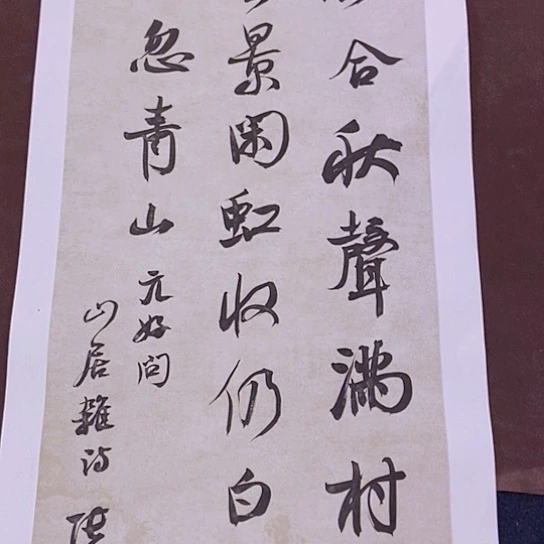 合秋聲滿村
景閑虹收仍白
忽青山
元好問
山居雜詩